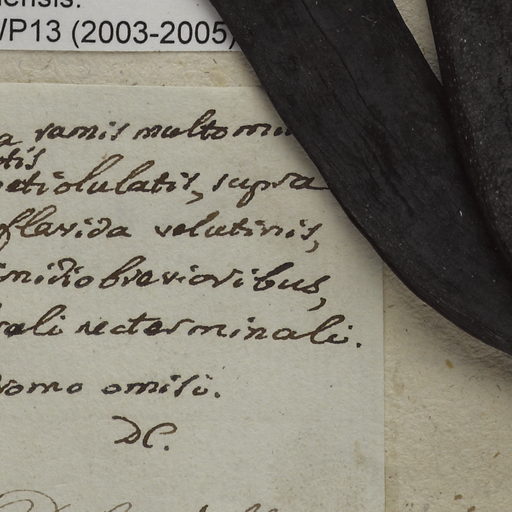 ensis.
/P13 (2003-2005)
a ramis multo
tis
etiolulatis, supra
flavida velutinis,
imidio brevioribus,
rali nec terminali.
romo omisi.
DC.